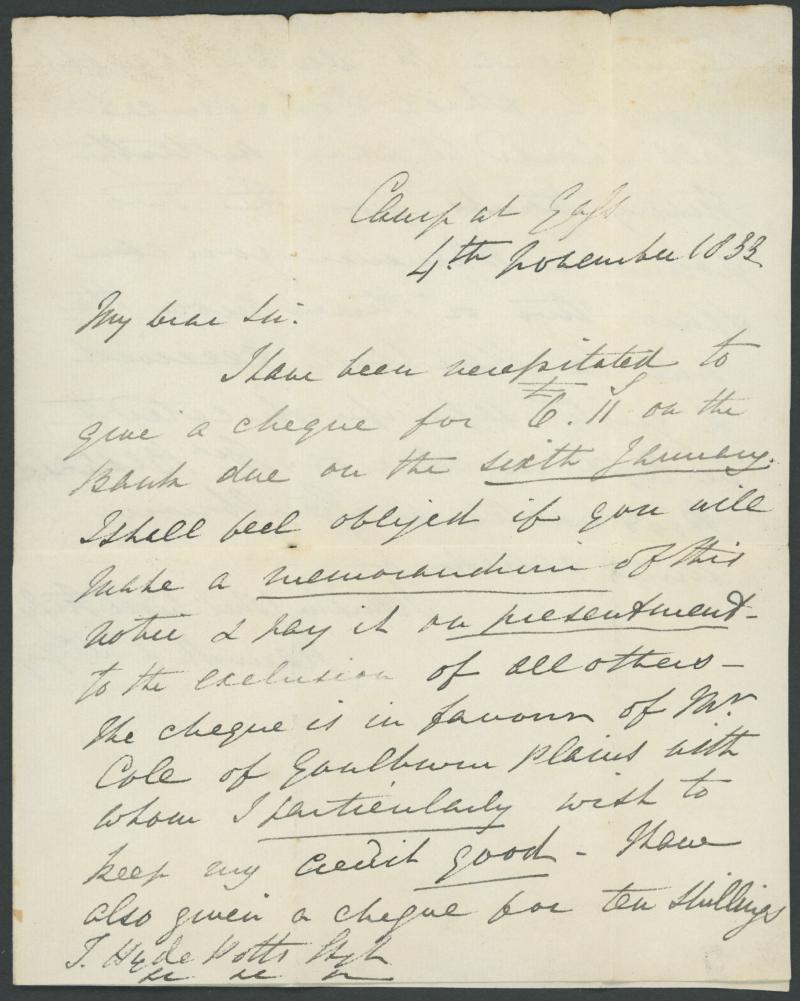 Camp at
4th November 1833
My dear Sir.
I have been necessitated to
give a cheque for £6.11 on the
Bank due on the sixth January.
I shall feel obliged if you will
make a memorandum of this
notice & pay it on presentment -
to the exclusion of all others -
the cheque is in favour of Mr.
Cole of Goulburn Plains with
whom I particularly wish to
keep my credit good - I have
also given a cheque for ten shillings
J. Hyde Potts Esqr